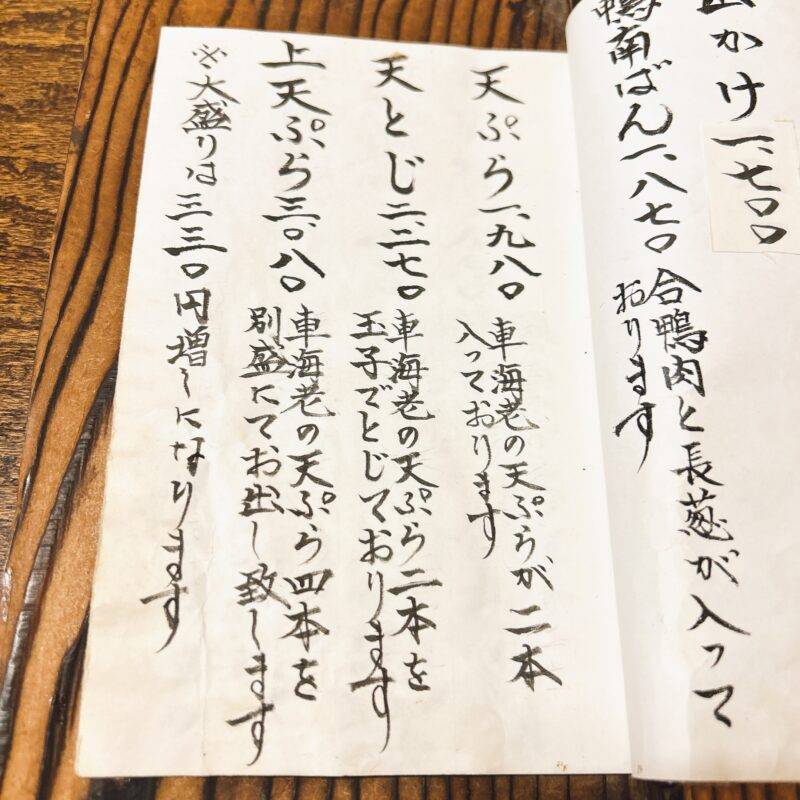 山かけ一、七〇〇
鴨南ばん一、八七〇
合鴨肉と長葱が入って
おります
天ぷら一、九八〇
車海老の天ぷらが二本
入っております
天とじ二、二七〇
車海老の天ぷら二本を
玉子でとじております
上天ぷら三、〇八〇
車海老の天ぷら四本を
別盛にてお出し致します
※大盛りは三三〇円増しになります